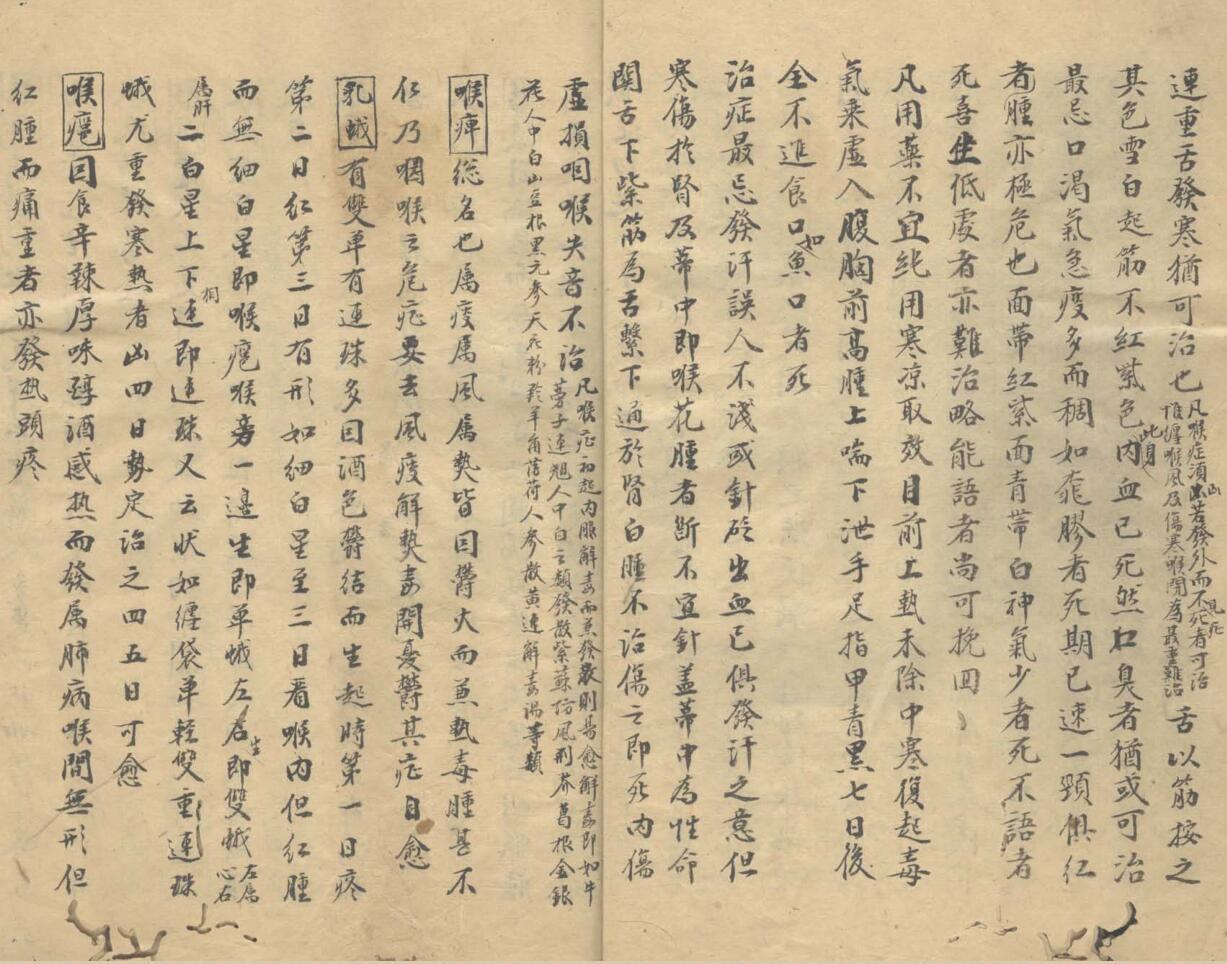 連重舌發寒猶可治也凡喉症須出苦發外而不死者可治惟纏喉風及傷寒喉閉為最重難治舌以筋按之
其色雪白起筋不紅紫色此身內血已死然口臭者猶或可治
最忌口渴氣急痰多而稠如桃膠者死期已速一頸俱紅
者腫亦極危也面帶紅紫面青帶白神氣少者死不語者
死喜坐低處者亦難治略能語者尚可挽回
凡用藥不宜純用寒涼取效目前上熱未除中寒復起毒
氣乘虛入腹胸前高腫上喘下泄手足指甲青黑七日後
全不進食口如魚口者死
治症最忌發汗誤人不淺或針砭出血已俱發汗之意但
寒傷於腎及蒂中即喉花腫者斷不宜針盖蒂中為性命
関舌下紫筋為舌繫下通於腎白腫不治傷之即死內傷
虛損咽喉失音不治凡喉症初起內服解毒而兼發散則易愈解毒即如牛
蒡子連翹人中白之類發散紫蘇防風荊芥葛根金銀
花人中白山豆根黑元參天花粉羚羊角薄荷人參散黄連解毒湯等類
喉痺総名也属痰属風属熱皆因欝火而兼熱毒腫甚不
仁乃咽喉之危症要去風痰解熱毒開憂欝其症自愈
乳蛾有雙单有連珠多因酒色欝結而生起時第一日疼
第二日紅第三日有形如細白星至三日看喉內但紅腫
而無細白星即喉疱喉旁一邊生即单蛾左右生即雙蛾左属心右
属肝二白星上下相連即連珠又云狀如纒袋单輕雙重連珠
蛾尤重發寒熱者凶四日勢定治之四五日可愈
喉疱因食辛辣厚味醇酒感热而發属肺病喉間無形但
紅腫而痛重者亦發热頭疼